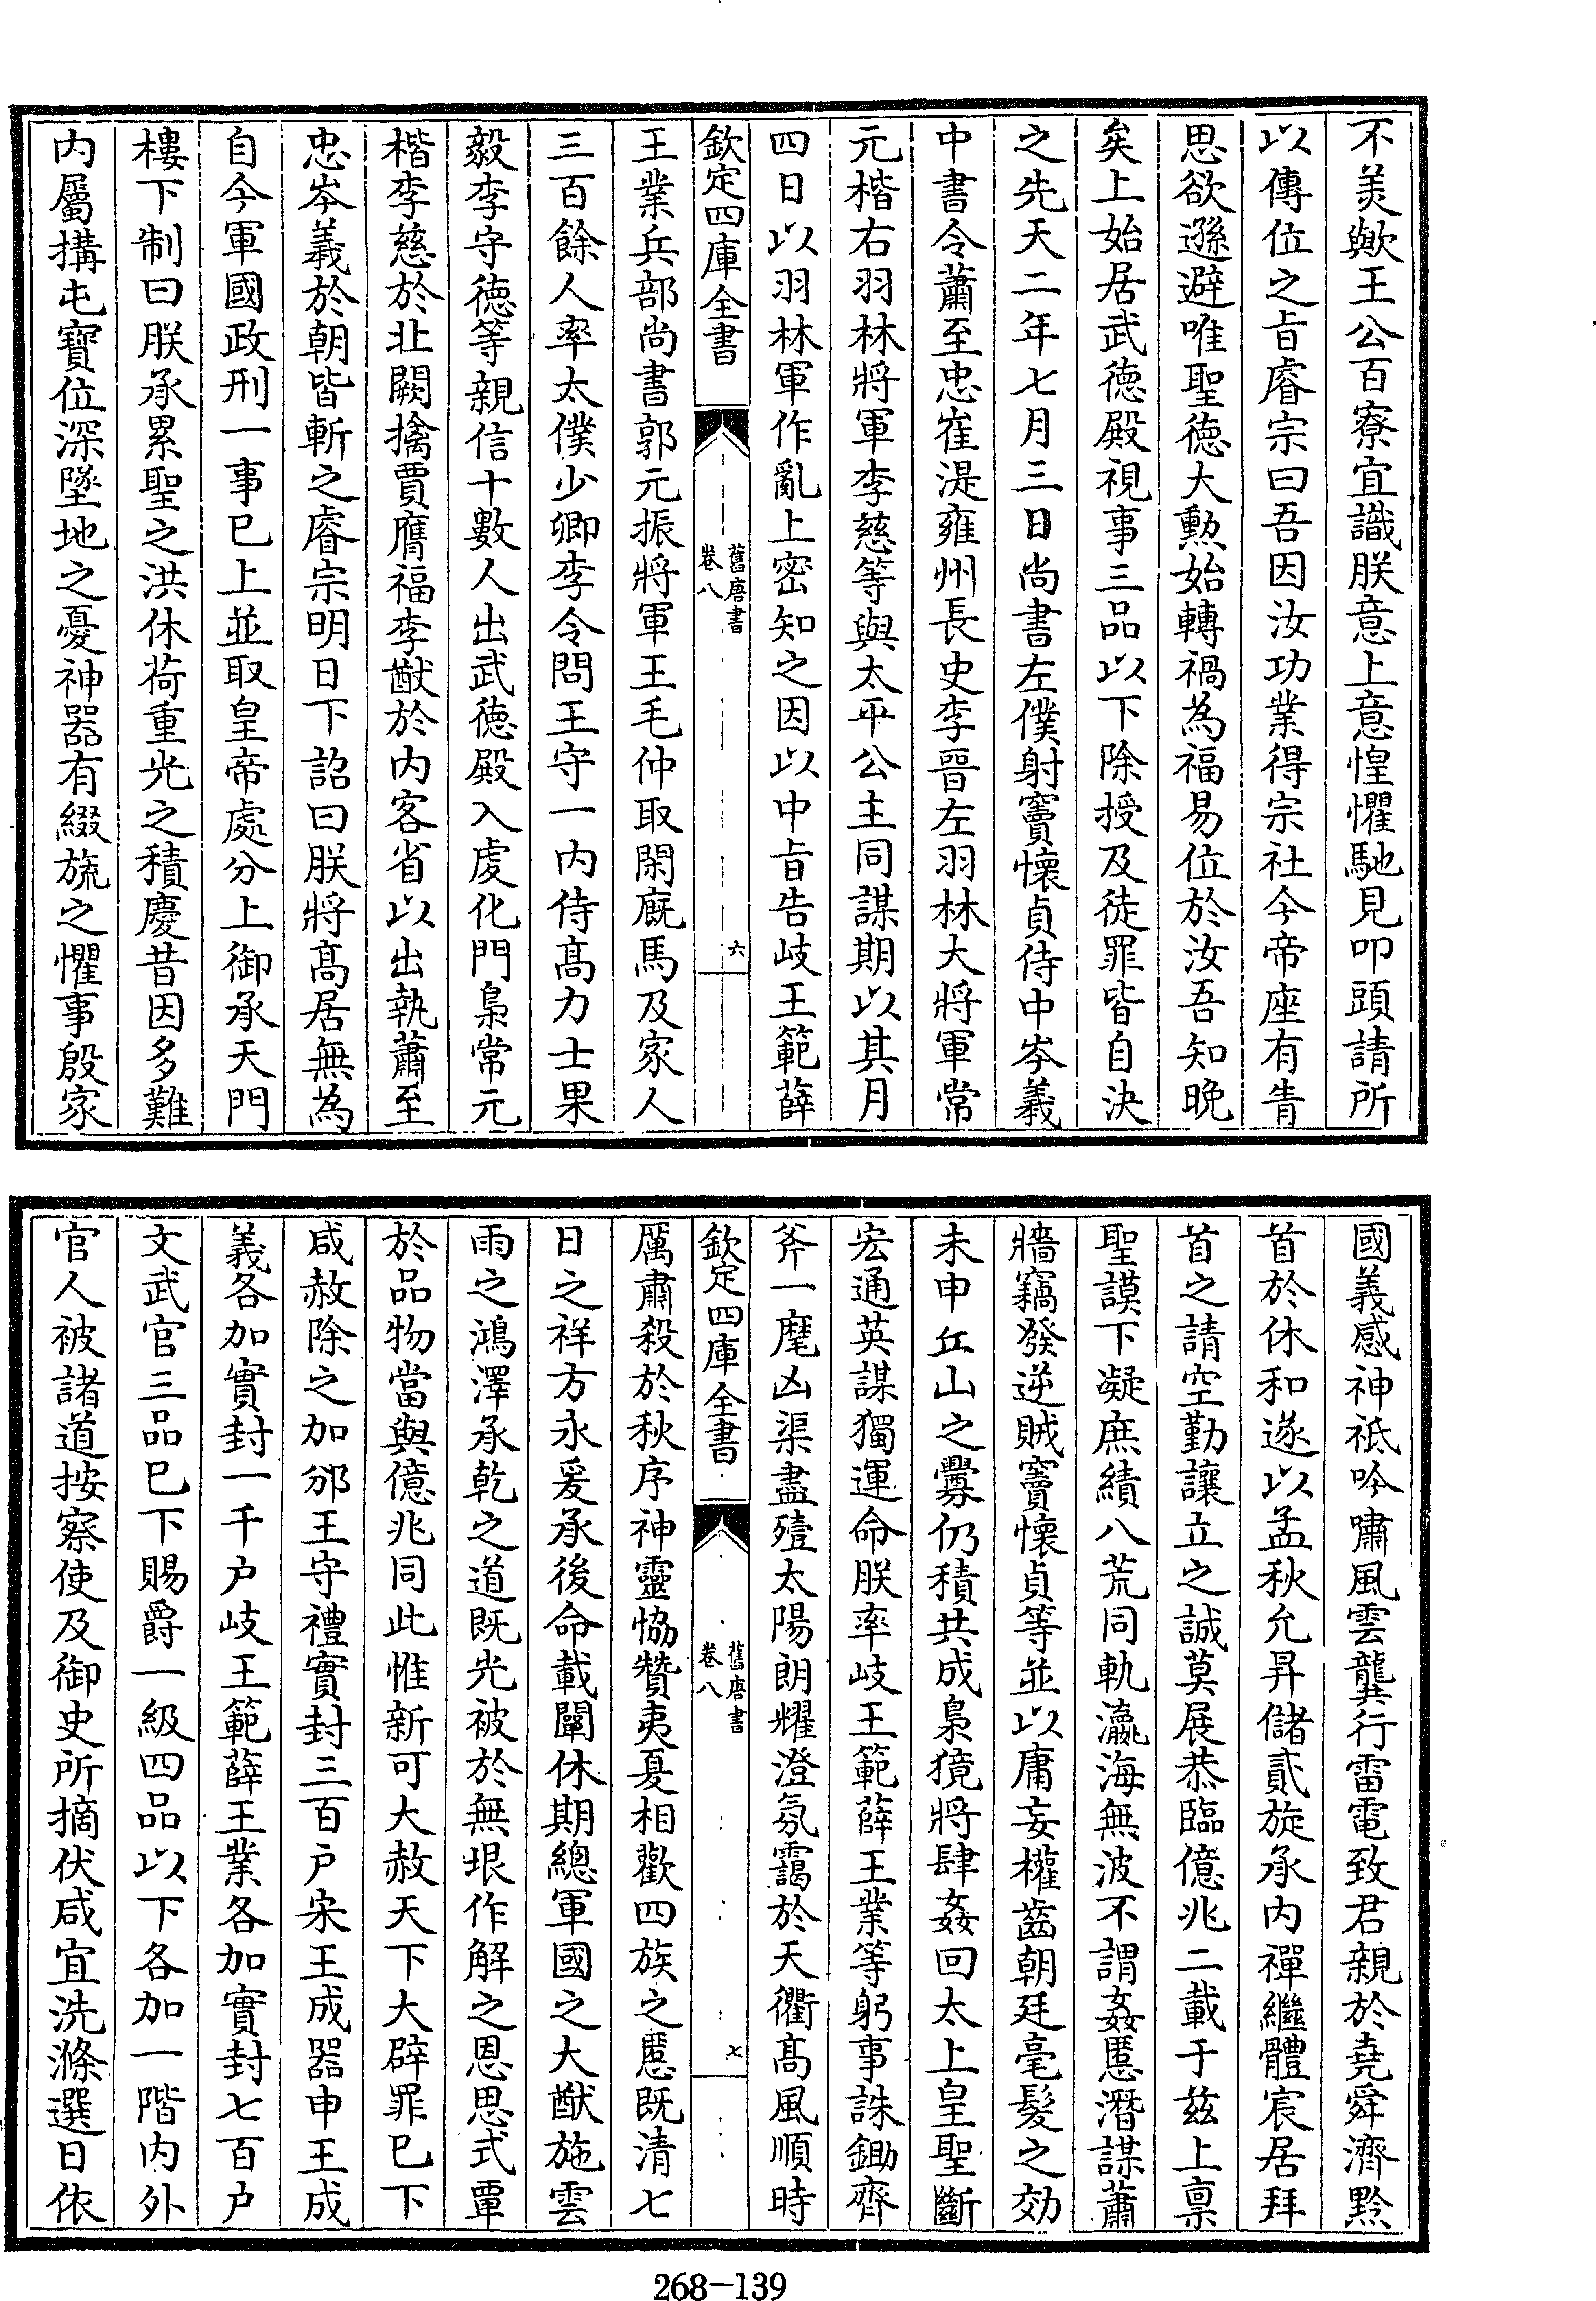 不羙歟王公百寮宜識朕意上意惶懼馳見叩頭請所
以傳位之旨睿宗曰吾因汝功業得宗社今帝座有眚
思欲遜避唯聖徳大勲始轉禍為福易位於汝吾知晚
矣上始居武徳殿視事三品以下除授及徒罪皆自決
之先天二年七月三日尚書左僕射竇懐貞侍中岑羲
中書令蕭至忠崔湜雍州長史李晉左羽林大將軍常
元楷右羽林將軍李慈等與太平公主同謀期以其月
四日以羽林軍作亂上密知之因以中旨告岐王範薛
欽定四庫全書
舊唐書
卷八
六
王業兵部尚書郭元振將軍王毛仲取閑廐馬及家人
三百餘人率太僕少卿李令問王守一內侍髙力士果
毅李守徳等親信十數人出武徳殿入䖍化門梟常元
楷李慈於北闕擒賈膺福李猷於内客省以出執蕭至
忠岑羲於朝皆斬之睿宗明日下詔曰朕將髙居無為
自今軍國政刑一事已上並取皇帝處分上御承天門
樓下制曰朕承累聖之洪休荷重光之積慶昔因多難
内屬搆屯寳位深墜地之憂神器有綴旒之懼事殷家
國義感神祇吟嘯風雲龔行雷電致君親於堯舜濟黔
首於休和遂以孟秋允昇儲貳旋承内禪繼體宸居拜
首之請空勤讓立之誠莫展恭臨億兆二載于兹上稟
聖謨下凝庶績八荒同軌瀛海無波不謂姦慝潛謀蕭
牆竊發逆賊竇懐貞等並以庸妄權齒朝廷毫髮之効
未申丘山之釁仍積共成梟獍將肆姦回太上皇聖斷
宏通英謀獨運命朕率岐王範薛王業等躬事誅鋤齊
斧一麾凶渠盡殪太陽朗耀澄氛靄於天衢髙風順時
欽定四庫全書
舊唐書
卷八
七
厲肅殺於秋序神靈恊贊夷夏相歡四族之慝既清七
日之祥方永爰承後命載闡休期總軍國之大猷施雲
雨之鴻澤承乾之道既光被於無垠作解之恩思式覃
於品物當與億兆同此惟新可大赦天下大辟罪已下
咸赦除之加邠王守禮實封三百戶宋王成器申王成
義各加實封一千戶岐王範薛王業各加實封七百戶
文武官三品已下賜爵一級四品以下各加一階内外
官人被諸道按察使及御史所摘伏咸宜洗滌選日依
268-139